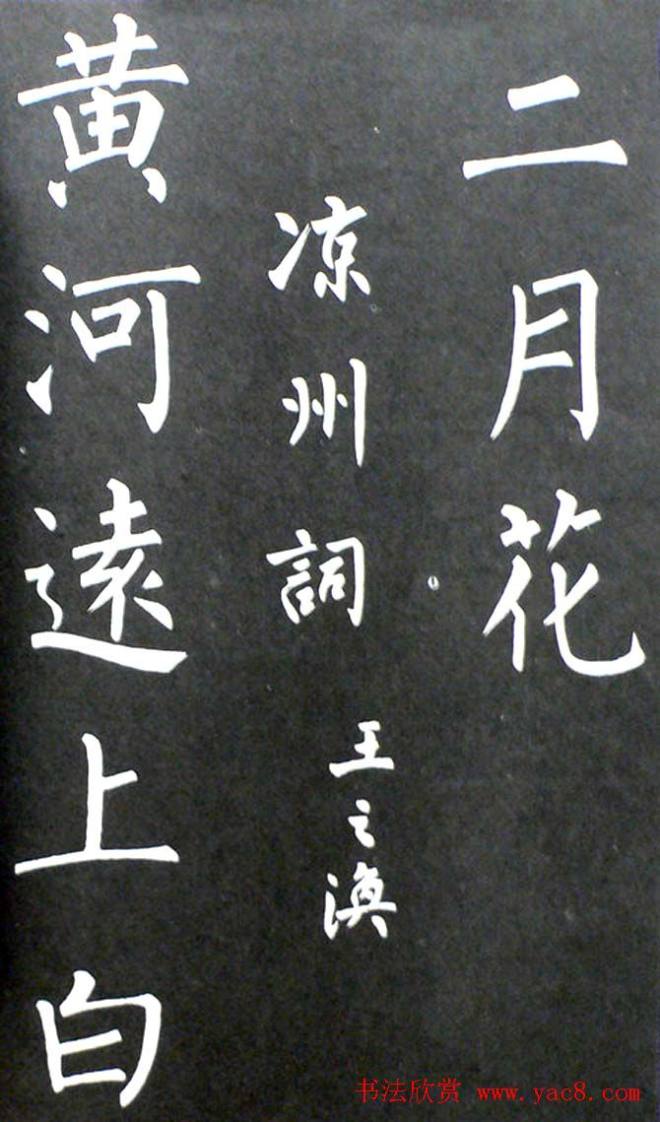 二月花
凉州詞
王之渙
黄河遠上白
书法欣赏 www.yac8.com